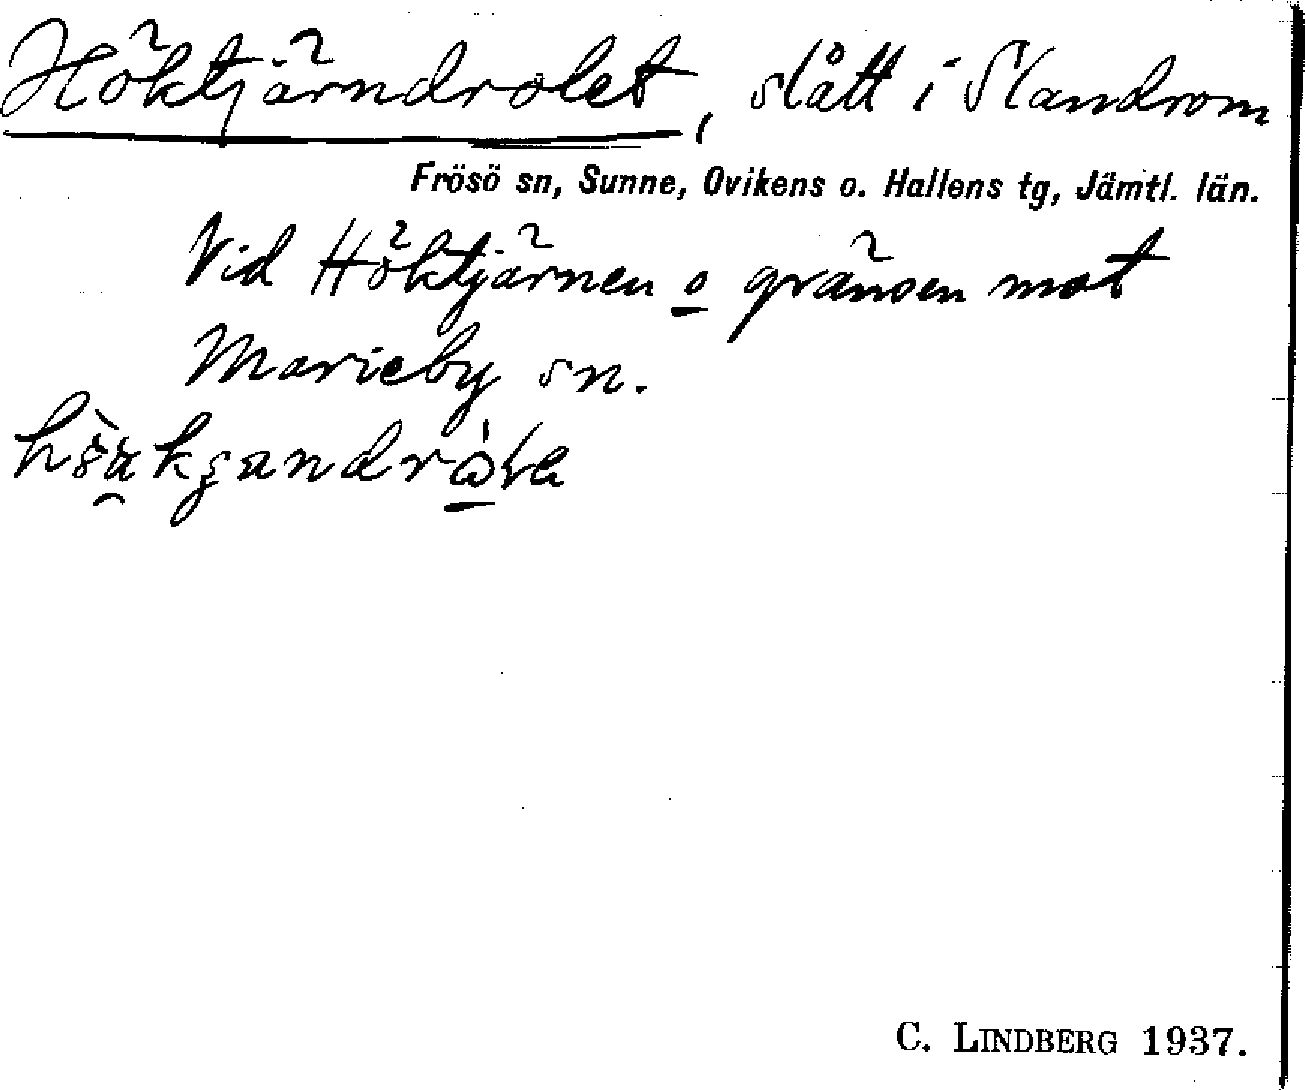 Höktjärndrolet, slått i Slandrom
Frösö sn, Sunne, Ovikens o. Hallens tg, Jämtl. län.
Vid Höktjärnen o gränsen mot
Marieby sn.
C. LINDBERG 1937.